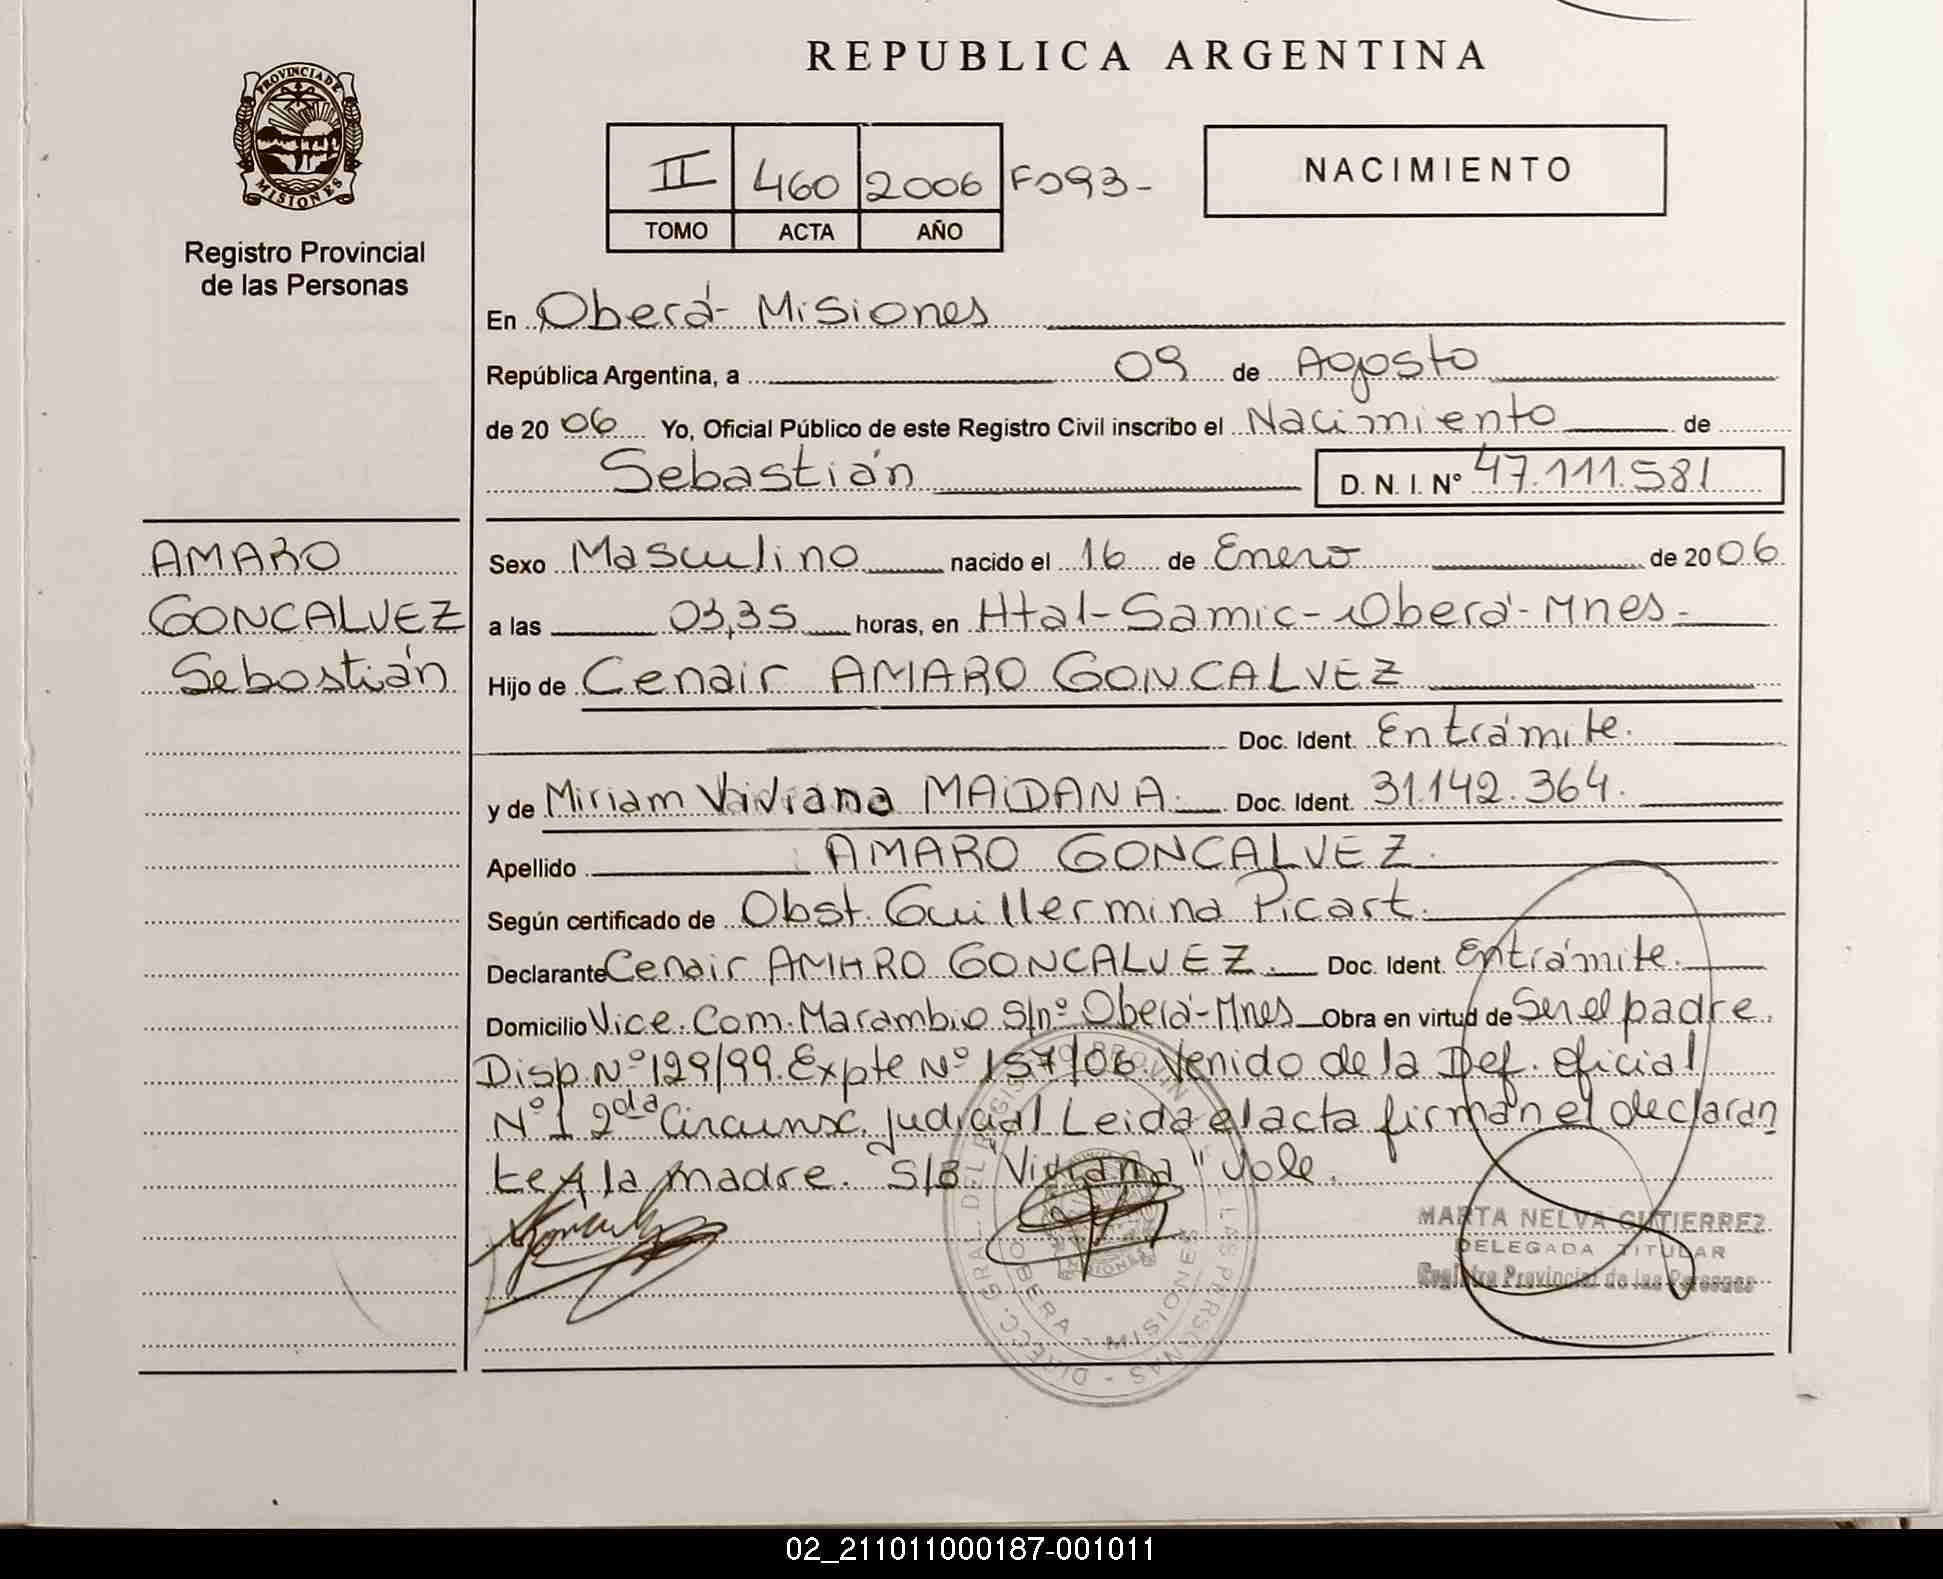 REPUBLICA ARGENTINA
PROVINCIA DE MISIONES
Registro Provincial
de las Personas
II 460 2006 Fo93-
TOMO ACTA AÑO
NACIMIENTO
En Oberá- Misiones
República Argentina, a 09 de Agosto
de 2006 Yo, Oficial Público de este Registro Civil inscribo el Nacimiento de
Sebastián D. N. I. N° 47.111.581
AMARO
GONCALVEZ
Sebastián
Sexo Masculino nacido el 16 de Enero de 2006
a las 03,35 horas, en Htal-Samic-Oberá-Mnes-
Hijo de Cenair AMARO GONCALVEZ
Doc. Ident. Entrámite.
y de Miriam Viviana MAIDANA. Doc. Ident. 31.142.364.
Apellido AMARO GONCALVEZ.
Según certificado de Obst. Guillermina Picart.
Declarante Cenair AMARO GONCALVEZ. Doc. Ident. Entrámite.
Domicilio Vice. Com. Marambio S/nº Oberá-Mnes Obra en virtud de Ser el padre.
Disp. Nº 129/99. Expte Nº 157/06. Venido de la Def. Oficial
Nº 1 2da Circunsc. judicial Leida el acta firman el declaran
te y la madre. S/B "Viviana" Vale.
MARTA NELVA GUTIERREZ
DELEGADA TITULAR
Registro Provincial de las Personas
DIRECC. GRAL. DEL REGISTRO PROVIN LAS PERSONAS
OBERA - MISIONES
02_211011000187-001011